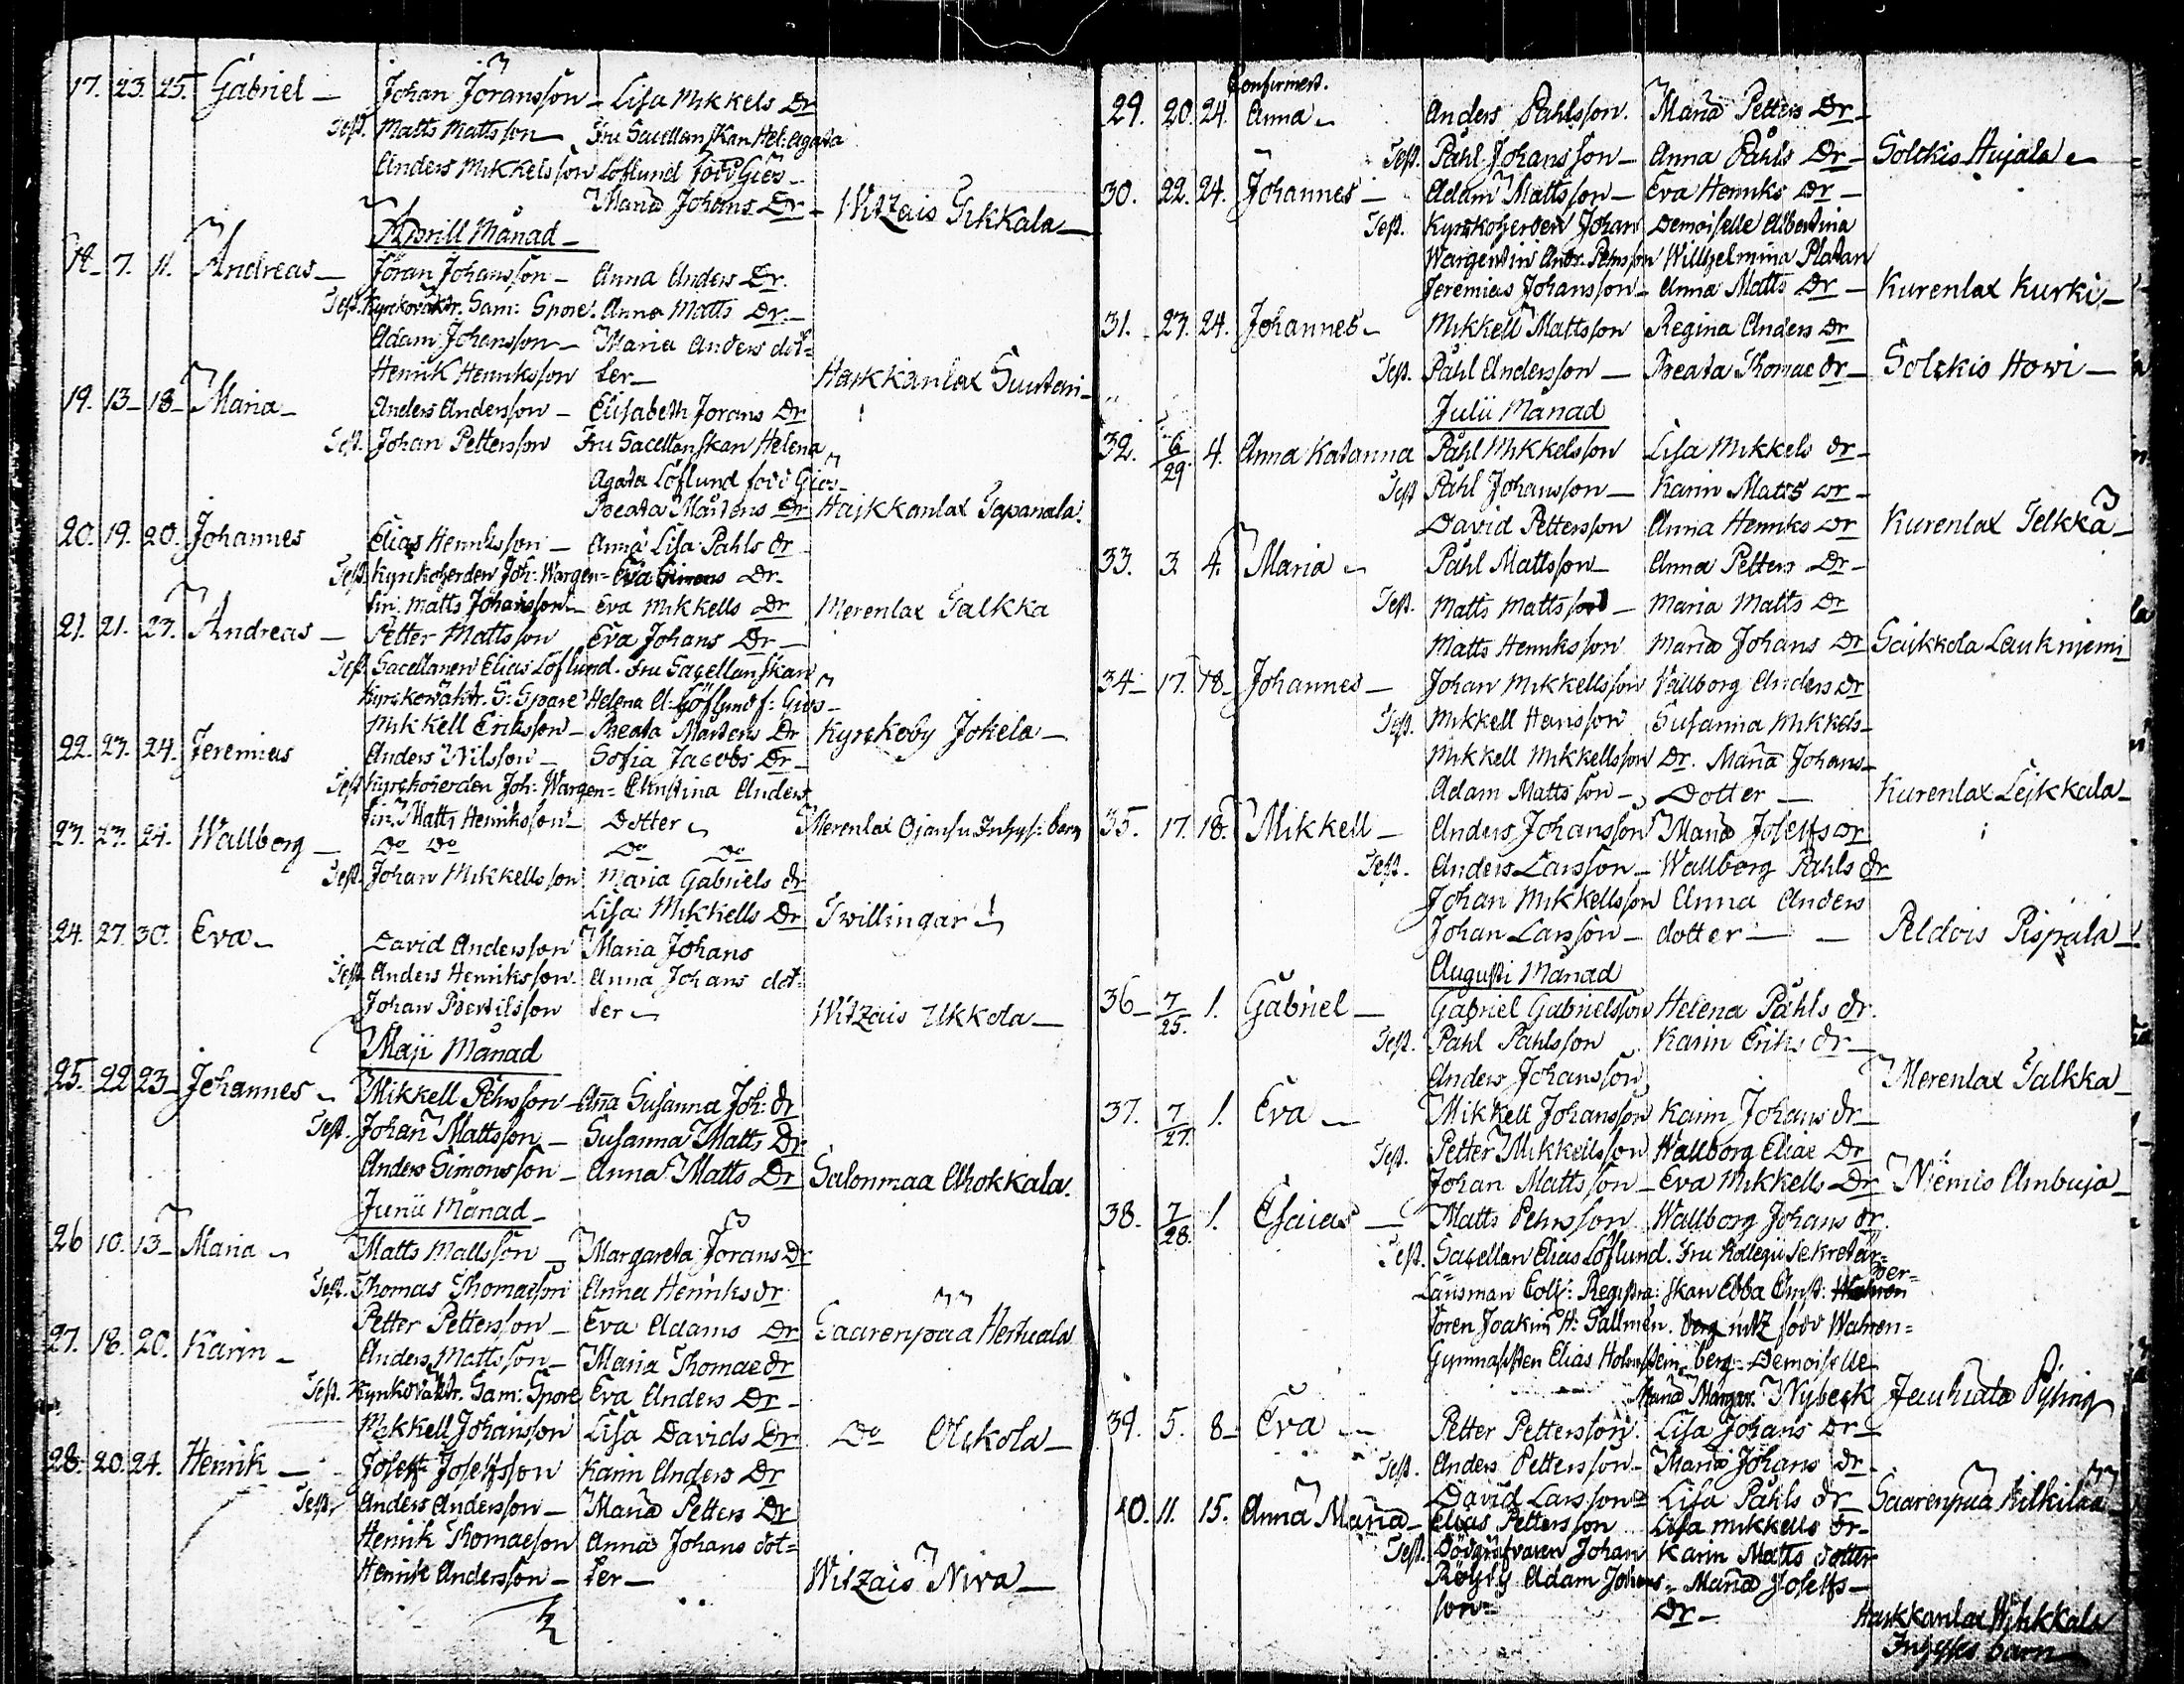 17. 23. 25. Gabriel — Johan Jöransson — Lisa Mikkels Dr
Test. Matts Mattsson — Fru Sacellanskan Hel: Agata
Anders Mikkelsson Löflund född Giös —
Maria Johans Dr — Witzais Tikkala —
Aprill Månad —
18. 7. 11. Andreas — Jöran Johansson — Anna Anders Dr.
Test. Kyrkovakt. Sam: Spore. Anna Matts Dr. —
Adam Johansson — Maria Anders dot=
Henrik Henriksson ter — Harkkanlax Suutari —
19. 13 — 18 — Maria — Anders Andersson — Elisabeth Jörans Dr
Test. Johan Pettersson Fru Sacellanskan Helena
Agata Löflund född Giös —
Beata Mårtens Dr Harkkanlax Tapanala.
20. 19. 20. Johannes Elias Henriksson — Anna Lisa Påhls dr
Test. Kyrkoherden Joh: Wargen= Eva Simons Dr —
tin. Matts Johansson — Eva Mikkells Dr Merenlax Talkka
21. 21. 27. Andreas — Petter Mattsson Eva Johans Dr —
Test. Sacellanen Elias Löflund. Fru Sacellanskan
Kyrkovakt. S: Spore Helena A: Löflund f: Giös —
Mikkell Eriksson — Beata Mårtens Dr Kyrkoby Jokela —
22. 23. 24. Jeremias Anders Nilsson — Sofia Jacobs Dr —
Test. Kyrkoherden Joh: Wargen= Christina Anders
tin. Matts Henriksson — Dotter Merenlax Ojansu Inhys: barn
23. 23. 24. Wallborg — Do Do Do Do
Test. Johan Mikkellsson Maria Gabriels dr
Lisa Mikkells Dr Twillingar!
24. 27. 30. Eva — David Andersson Maria Johans
Test. Anders Henriksson. Anna Johans dot=
Johan Bertilsson ter — Witzais Ukkola —
Maji Månad
25. 22 23 — Johannes — Mikkell Pehrsson — Anna Susanna Joh: dr
Test. Johan Mattsson — Susanna Matts Dr
Anders Simonsson — Anna Matts Dr Salonmaa Ahokkala.
Junii Månad —
26 10. 13 — Maria — Matts Mattsson — Margareta Jörans Dr
Test. Thomas Thomasson Anna Henriks dr
Petter Pettersson — Eva Adams Dr Saarenpää Hertuala
27. 18. 20. Karin — Anders Mattsson — Maria Thomae dr
Test. Kyrkovakt. Sam: Spore Eva Anders Dr —
Mikkell Johansson Lisa Davids Dr Do Olikola —
28. 20. 24. Henrik — Joseff Joseffsson Karin Anders Dr
Test. Anders Andersson — Maria Petters Dr
Henrik Thomaeson Anna Johans dot=
Henrik Andersson — ter — Witzais Niva —
Confirmert.
29. 20. 24. Anna — Anders Pahlsson. Maria Petters Dr —
Test. Påhl Johansson — Anna Påhls Dr — Solckis Hujala —
30. 22. 24. Johannes — Adam Mattsson — Eva Henriks Dr —
Test. Kyrkoherden Johan Demoiselle Albertina
Wargentin Andr. Pehrsson Willhelmina Platan
Jeremias Johansson — Anna Matts Dr — Kurenlax Kurki —
31. 23. 24. Johannes — Mikkell Mattsson Regina Anders Dr
Test. Påhl Andersson — Beata Thomae dr — Solckis Howi —
Julii Månad
32. 6/29. 4. Anna Katarina Påhl Mikkelsson Lisa Mikkels dr —
Test Påhl Johansson — Karin Matts Dr —
David Pettersson Anna Henriks Dr Kurenlax Telkkä —
33. 3 4. Maria — Påhl Mattsson — Anna Petters Dr —
Test. Matts Mattsson — Maria Matts Dr
Matts Henriksson Maria Johans Dr Saikkola Laukniemi
34 — 17. 18 — Johannes — Johan Mikkellsson Wallborg Anders Dr
Test. Mikkell Hansson Susanna Mikkels —
Mikkell Mikkellsson Dr. Maria Johans —
Adam Mattsson — Dotter — Kurenlax Leikkala —
35. 17. 18. Mikkell — Anders Johansson Maria Joseffs Dr
Test. Anders Larsson — Wallborg Påhls dr
Johan Mikkellsson Anna Anders
Johan Larsson — dotter — — Peldois Pispala —
Augusti Månad
36 — 7/25. 1. Gabriel — Gabriel Gabrielsson Helena Påhls dr.
Test. Påhl Påhlsson Karin Eriks dr —
Anders Johansson Merenlax Talkka
37. 7/27. 1. Eva — Mikkell Johansson Karin Johans dr —
Test. Petter Mikkellsson Wallborg Eliae Dr
Johan Mattsson — Eva Mikkells Dr Niemis Ambuja —
38. 7/28. 1. Esaias — Matts Pehrsson Wallborg Johans dr.
Test. Sacellan Elias Löflund. Fru Kollegii Sekretär=
Länsman Coll: Registra: skan Ebba Christ:
toren Joakim H: Tallmén. född Wahren=
Gymnasisten Elias Holmstein. berg. Demoiselle
Maria Margar. Nybeck Jauhiala Pyling
39. 5. 8 — Eva — Petter Pettersson. Lisa Johans Dr —
Test. Anders Pettersson — Maria Johans Dr —
David Larsson Lisa Påhls dr — Saarenpää Kilkilää —
40. 11. 15. Anna Maria — Elias Pettersson Lisa Mikkells dr —
Test. Dödgräfvaren Johan Karin Matts dotter
Adam Johans= Maria Joseffs —
son — Dr — Harkkanlax Wihkkala
Inhyses barn